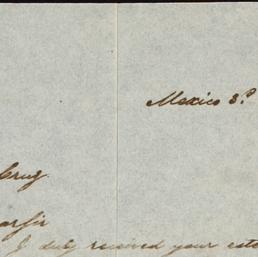 Mexico 3.d
Cruz
ar Sir
I duly received your este